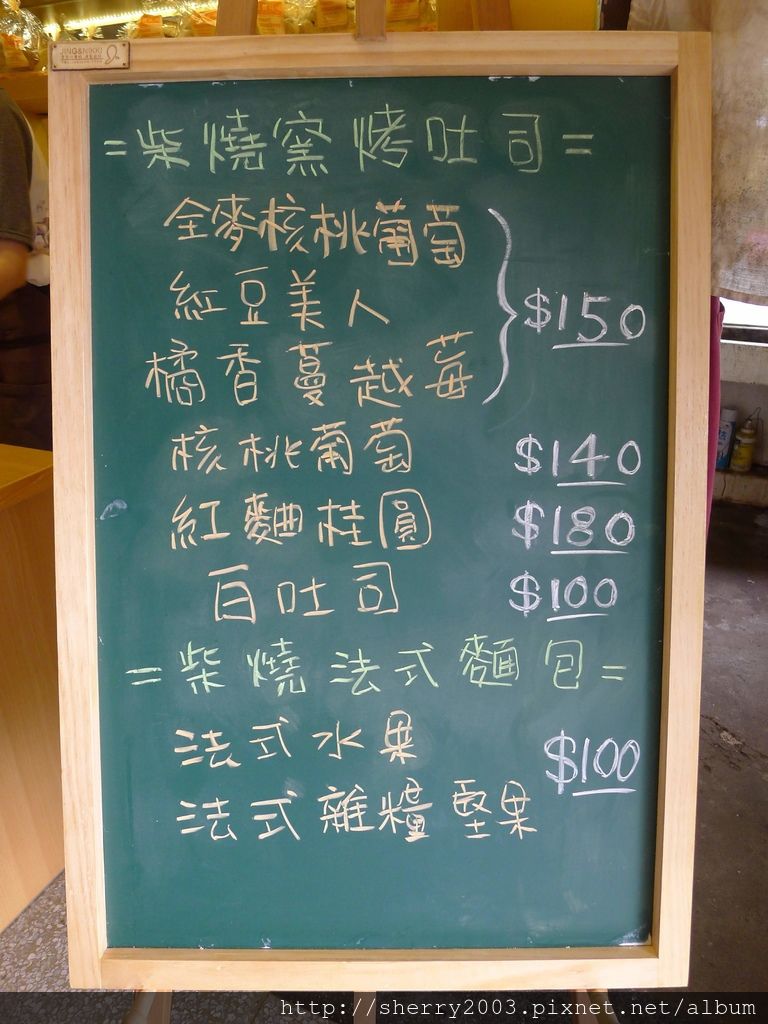 JING&NIKKI
=柴燒窯烤吐司=
全麥核桃葡萄
紅豆美人
橘香蔓越莓
$150
核桃葡萄 $140
紅麴桂圓 $180
白吐司 $100
=柴燒法式麵包=
法式水果
$100
法式雜糧堅果
http://sherry2003.pixnet.net/album